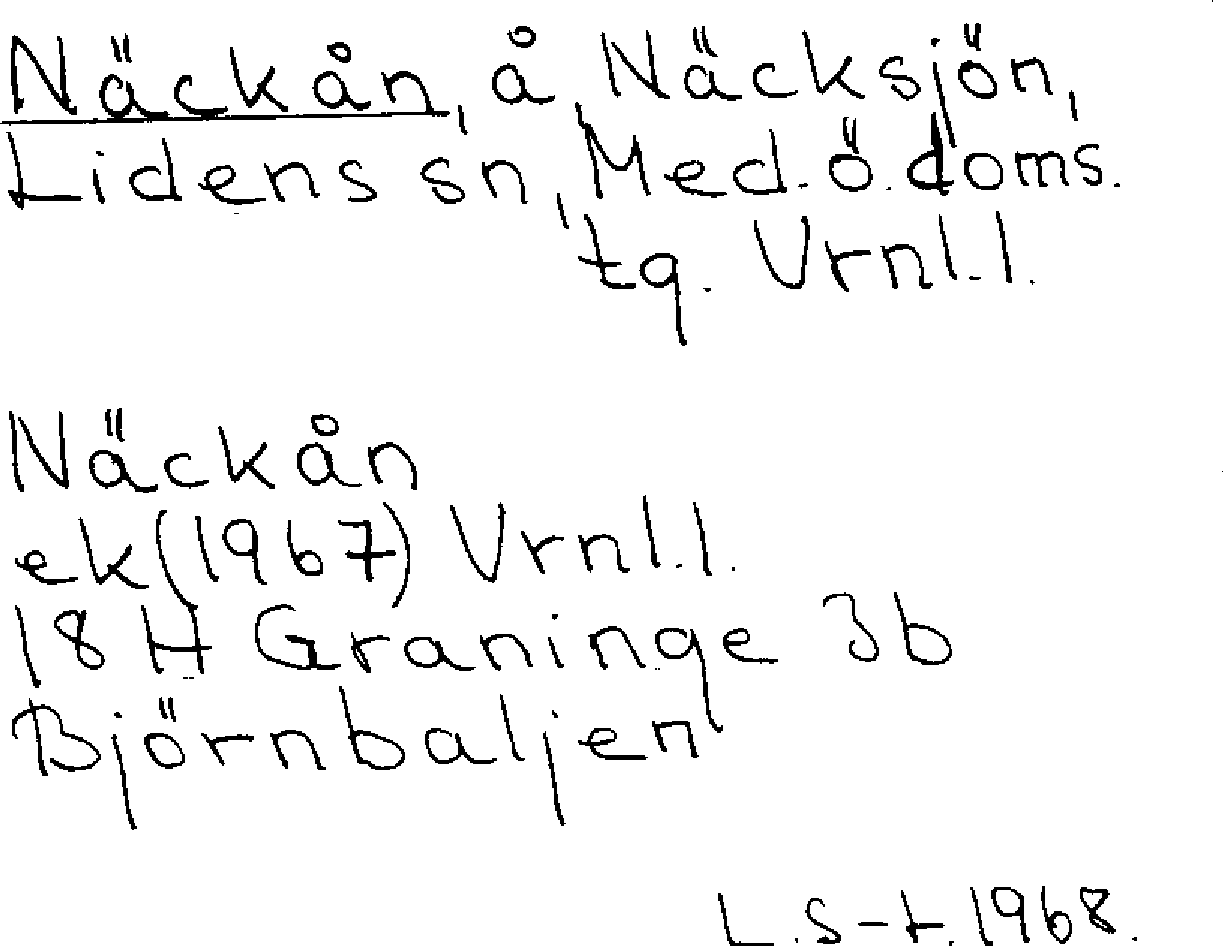 Näckån, å, Näcksjön,
Lidens sn, Med. ö. doms.
tg. Vrnl.l.
Näckån
ek(1967) Vrnl.l.
18 H Graninge 3b
Björnbaljen
L.S-t. 1968.